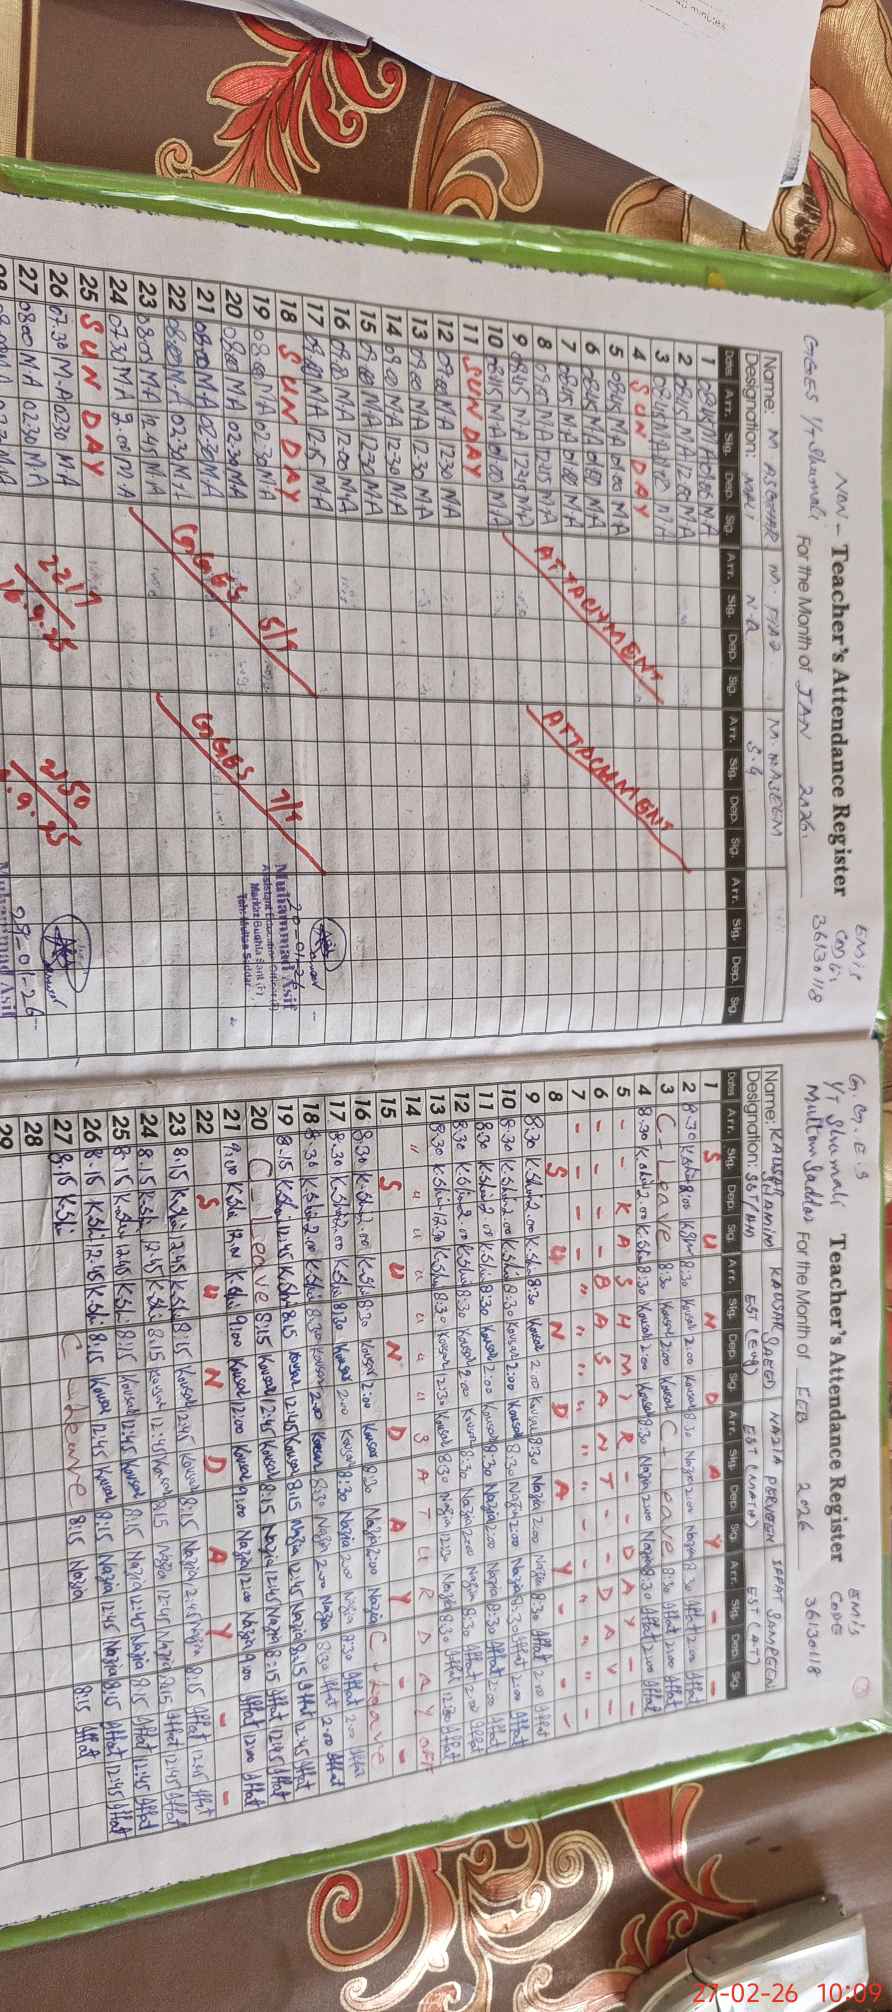 NON - Teacher's Attendance Register
EMIS
Code
36130118
GGES Y/T Shumali For the Month of JAN 2026.
Name: M ASGHAR M. FIAZ M. NASEEM
Designation: MALI N.Q S.G
Dates Arr. Sig. Dep. Sig. Arr. Sig. Dep. Sig. Arr. Sig. Dep. Sig. Arr. Sig. Dep. Sig.
1 0845 MA 0100 MA
2 0845 MA 1200 MA
3 0845 MA MA
4 SUNDAY
5 0845 MA 0100 MA
6 0845 MA 0100 MA
7 0845 MA 0100 MA
8 MA 1215 MA
9 0845 MA 1245 MA
10 0845 MA 0100 MA
11 SUNDAY
12 0900 MA 1230 MA
13 0900 MA 1230 MA
14 0900 MA 1230 MA
15 0900 MA 1230 MA
16 MA 1200 MA
17 MA 1215 MA
18 SUNDAY
19 0800 MA 0230 MA
20 0800 MA 02:30 MA
21 0800 MA 02:30 MA
22 0800 MA 02:30 MA
23 0800 MA 12:45 MA
24 07:30 MA 2:00 MA
25 SUNDAY
26 07:30 MA 0230 MA
27 0800 MA 02:30 MA
28
ATTACHMENT
ATTACHMENT
GGES
GGES
2217
16.9.25
2150
.9.25
20-01-26
Muhammad Asif
Assistant Education Officer
Markaz Buchla Sant (F)
Teh: Multan Saddar
29-01-26
Muhammad Asif
G.G.E.S
Y/T Shumali
Multan Saddar
Teacher's Attendance Register
EMIS
CODE
36130118
For the Month of FEB 2026
Name: KAUSAR SHAMIM KAUSAR SAEED NAZIA PERVEEN IFFAT SAMREEN
Designation: SST (AM) EST (Eng) EST (MATH) EST (AT)
Dates Arr. Sig. Dep. Sig. Arr. Sig. Dep. Sig. Arr. Sig. Dep. Sig. Arr. Sig. Dep. Sig.
1 SUNDAY - -
2 8:30 K.Shi 2:00 K.Shi 8:30 Kousar 2:00 Kousar 8:30 Nazia 2:00 Nazia 8:30 Iffat 2:00 Iffat
3 C - Leave 8:30 Kousar 2:00 Kousar C - Leave 8:30 Iffat 2:00 Iffat
4 8:30 K.Shi 2:00 K.Shi 8:30 Kousar 2:00 Kousar 8:30 Nazia 2:00 Nazia 8:30 Iffat 2:00 Iffat
5 - - KASHMIR - - DAY - -
6 - - - BASANT - - DAY -
7 - - - " " " " - - " " -
8 SUNDAY - - -
9 8:30 K.Shi 2:00 K.Shi 8:30 Kousar 2:00 Kousar 8:30 Nazia 2:00 Nazia 8:30 Iffat 2:00 Iffat
10 8:30 K.Shi 2:00 K.Shi 8:30 Kousar 2:00 Kousar 8:30 Nazia 2:00 Nazia 8:30 Iffat 2:00 Iffat
11 8:30 K.Shi 2:00 K.Shi 8:30 Kousar 2:00 Kousar 8:30 Nazia 2:00 Nazia 8:30 Iffat 2:00 Iffat
12 8:30 K.Shi 2:00 K.Shi 8:30 Kousar 2:00 Kousar 8:30 Nazia 2:00 Nazia 8:30 Iffat 2:00 Iffat
13 8:30 K.Shi 12:30 K.Shi 8:30 Kousar 12:30 Kousar 8:30 Nazia 12:30 Nazia 8:30 Iffat 12:30 Iffat
14 " " " " " " " SATURDAY OFF
15 SUNDAY - -
16 8:30 K.Shi 2:00 K.Shi 8:30 Kousar 2:00 Kousar 8:30 Nazia 2:00 Nazia C - Leave
17 8:30 K.Shi 2:00 K.Shi 8:30 Kousar 2:00 Kousar 8:30 Nazia 2:00 Nazia 8:30 Iffat 2:00 Iffat
18 8:30 K.Shi 2:00 K.Shi 8:30 Kousar 2:00 Kousar 8:30 Nazia 2:00 Nazia 8:30 Iffat 2:00 Iffat
19 8:15 K.Shi 12:45 K.Shi 8:15 Kousar 12:45 Kousar 8:15 Nazia 12:45 Nazia 8:15 Iffat 12:45 Iffat
20 C - Leave 8:15 Kousar 12:45 Kousar 8:15 Nazia 12:45 Nazia 8:15 Iffat 12:45 Iffat
21 9:00 K.Shi 12:00 K.Shi 9:00 Kousar 12:00 Kousar 9:00 Nazia 12:00 Nazia 9:00 Iffat 12:00 Iffat
22 SUNDAY - -
23 8:15 K.Shi 12:45 K.Shi 8:15 Kousar 12:45 Kousar 8:15 Nazia 12:45 Nazia 8:15 Iffat 12:45 Iffat
24 8:15 K.Shi 12:45 K.Shi 8:15 Kousar 12:45 Kousar 8:15 Nazia 12:45 Nazia 8:15 Iffat 12:45 Iffat
25 8:15 K.Shi 12:45 K.Shi 8:15 Kousar 12:45 Kousar 8:15 Nazia 12:45 Nazia 8:15 Iffat 12:45 Iffat
26 8:15 K.Shi 12:45 K.Shi 8:15 Kousar 12:45 Kousar 8:15 Nazia 12:45 Nazia 8:15 Iffat 12:45 Iffat
27 8:15 K.Shi C - Leave 8:15 Nazia 8:15 Iffat
28
29
27-02-26 10:09